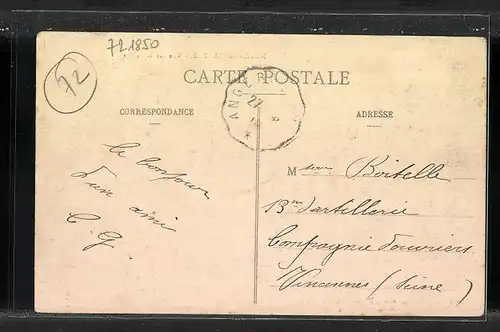 721850
72
CARTE POSTALE
ANGE
27
CORRESPONDANCE
ADRESSE
le bonjour
d'une amie
C. G.
M Boitelle
13me d'artillerie
Compagnie d'ouvriers
Vincennes (Seine)